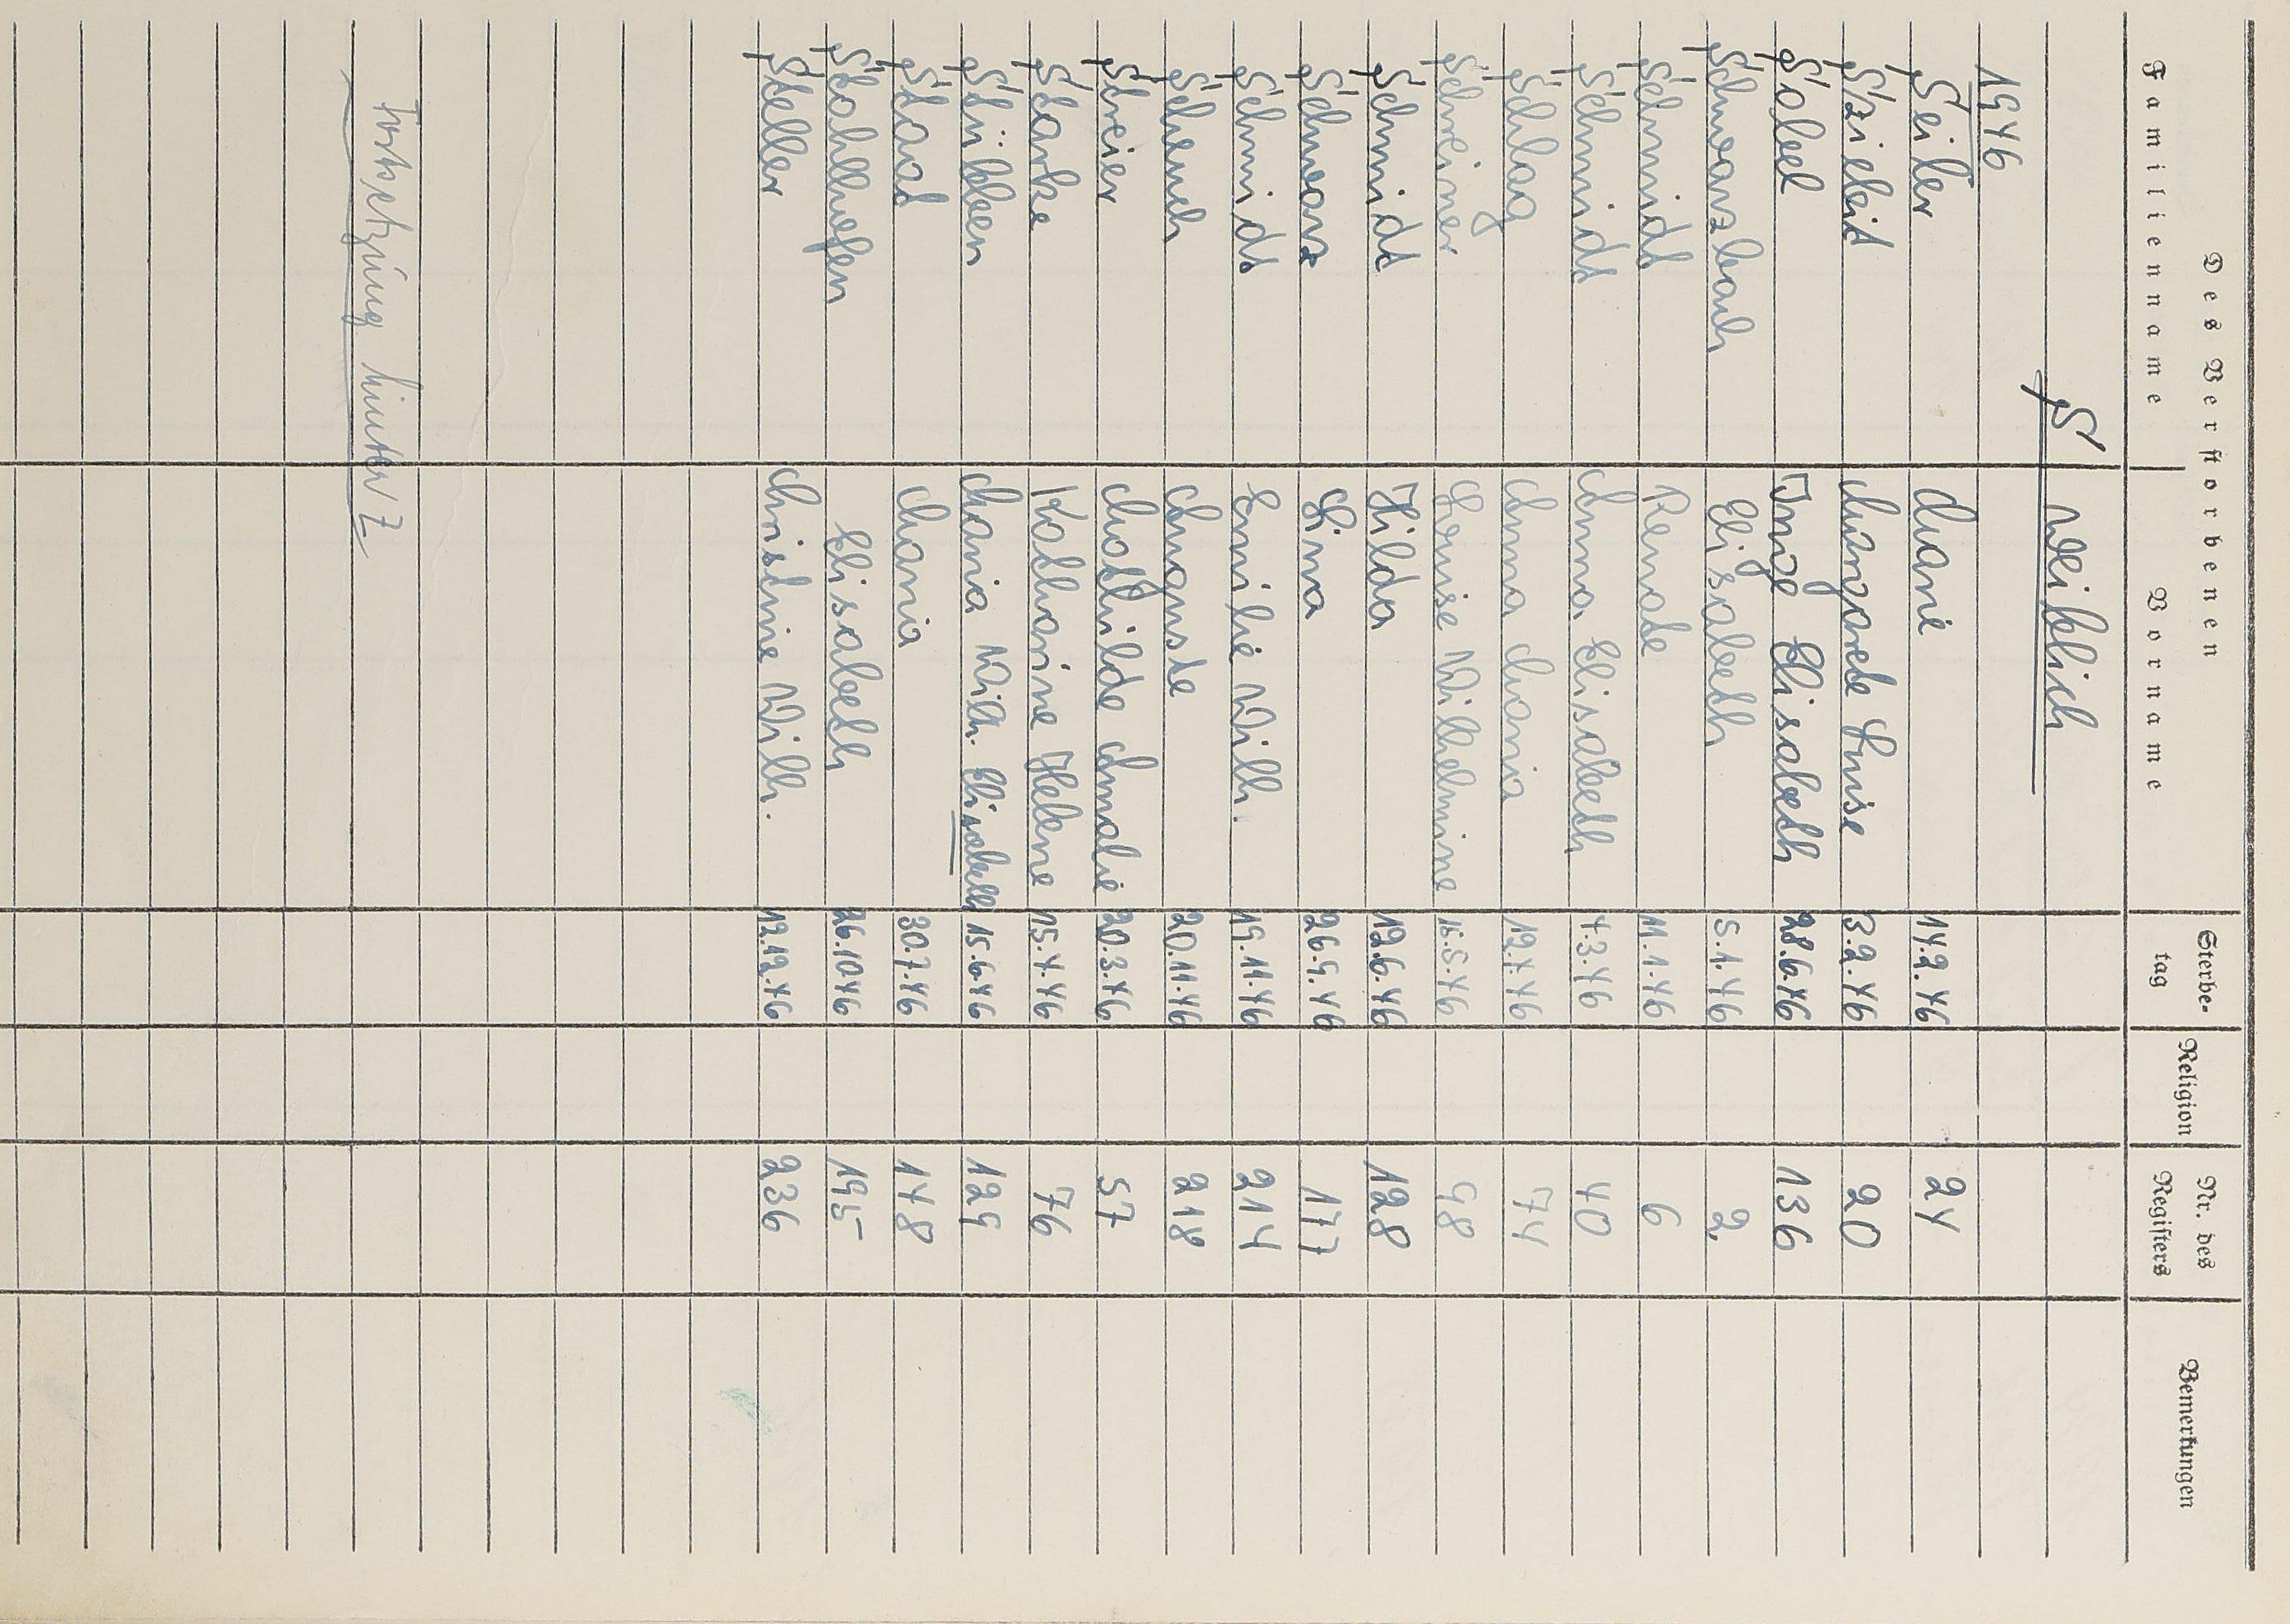 Des Verstorbenen
Familienname Vorname Sterbetag Religion Nr. des Registers Bemerkungen
S weiblich
1946
Seiler Marie 14.2.46 24
Szieleit Margarete Luise 3.2.46 20
Sabel Inge Elisabeth 28.6.46 136
Schwarzbach Elisabeth 5.1.46 2
Schmidt Renate 11.1.46 6
Schmidt Anna, Elisabeth 4.3.46 40
Schlag Anna Maria 12.4.46 74
Schreiner Louise Wilhelmine 16.5.46 98
Schmidt Hilda 12.6.46 128
Schwarz Lina 26.9.46 177
Schmidt Emilie Wilh. 19.11.46 214
Schench Auguste 20.11.46 218
Streier Mathilde Amalie 20.3.46 57
Starke Katharine Helene 15.4.46 76
Stübben Maria Wilh. Elisabeth 15.6.46 129
Staat Maria 30.7.46 148
Stahlhofen Elisabeth 26.10.46 195
Steller Christine Wilh. 12.12.46 236
Fortsetzung hinter Z